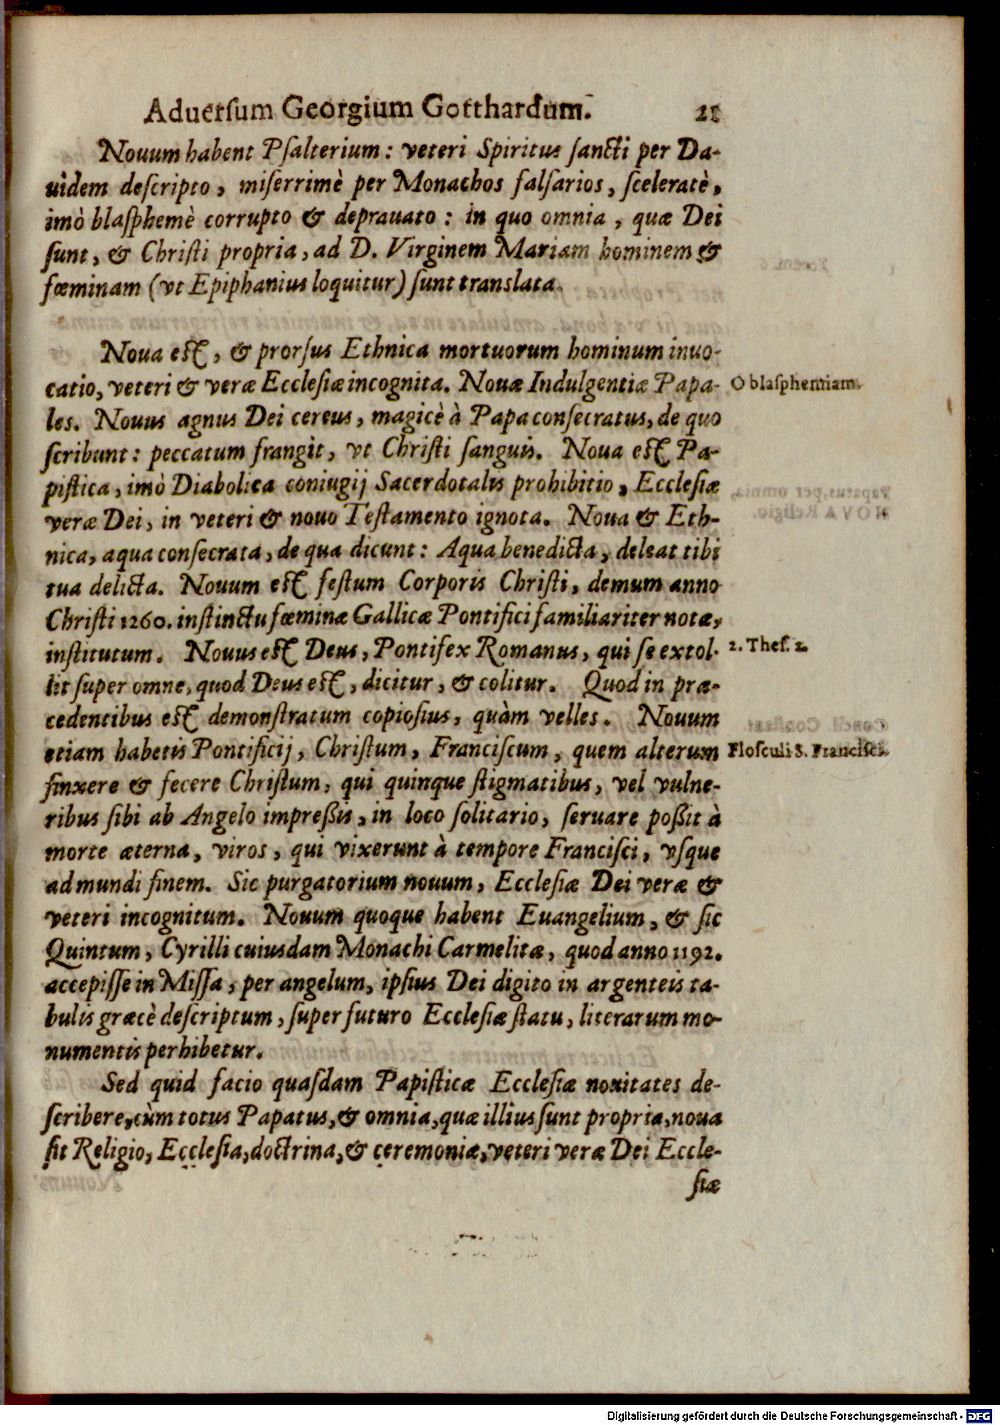 Aduersum Georgium Gotthardum. 21
Nouum habent Psalterium: veteri Spiritus sancti per Da-
uidem descripto, miserrimè per Monachos falsarios, sceleratè,
imò blasphemè corrupto & deprauato: in quo omnia, quæ Dei
sunt, & Christi propria, ad D. Virginem Mariam hominem &
fœminam (vt Epiphanius loquitur) sunt translata.
Noua est, & prorsus Ethnica mortuorum hominum inuo-
catio, veteri & veræ Ecclesiæ incognita. Nouæ Indulgentiæ Papa-
O blasphemiam.
les. Nouus agnus Dei cereus, magicè à Papa consecratus, de quo
scribunt: peccatum frangit, vt Christi sanguis. Noua est Pa-
pistica, imò Diabolica coniugij Sacerdotalis prohibitio, Ecclesiæ
veræ Dei, in veteri & nouo Testamento ignota. Noua & Eth-
nica, aqua consecrata, de qua dicunt: Aqua benedicta, deleat tibi
tua delicta. Nouum est festum Corporis Christi, demum anno
Christi 1260. instinctu fœminæ Gallicæ Pontifici familiariter notæ,
institutum. Nouus est Deus, Pontifex Romanus, qui se extol-
2. Thes. 2.
lit super omne, quod Deus est, dicitur, & colitur. Quod in præ-
cedentibus est demonstratum copiosius, quàm velles. Nouum
etiam habetis Pontificij, Christum, Franciscum, quem alterum
Flosculi S. Francisci.
finxere & fecere Christum, qui quinque stigmatibus, vel vulne-
ribus sibi ab Angelo impreßis, in loco solitario, seruare poßit à
morte æterna, viros, qui vixerunt à tempore Francisci, vsque
ad mundi finem. Sic purgatorium nouum, Ecclesiæ Dei veræ &
veteri incognitum. Nouum quoque habent Euangelium, & sic
Quintum, Cyrilli cuiusdam Monachi Carmelitæ, quod anno 1192.
accepisse in Missa, per angelum, ipsius Dei digito in argenteis ta-
bulis græcè descriptum, super futuro Ecclesiæ statu, literarum mo-
numentis perhibetur.
Sed quid facio quasdam Papisticæ Ecclesiæ nouitates de-
scribere, cùm totus Papatus, & omnia, quæ illius sunt propria, noua
sit Religio, Ecclesia, doctrina, & ceremoniæ, veteri veræ Dei Eccle-
siæ
Digitalisierung gefördert durch die Deutsche Forschungsgemeinschaft - DFG